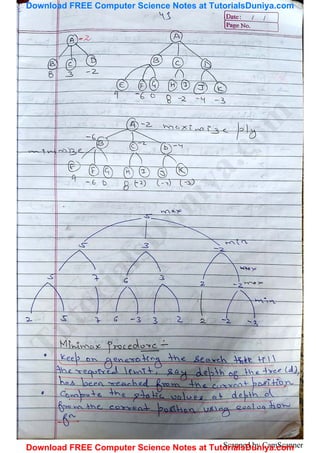 Download FREE Computer Science Notes at TutorialsDuniya.com
43
Date: / /
Page No.
A -2
A
B C D
B C D
8 3 -2
E F G H I J K
9 -6 0 8 -2 -4 -3
A -2 maximize ply
-6 B C -2 D -4
minimize
E F G H I J K
9 -6 0 8 (-2) (-4) (-3)
5 max
5 3 -2 min
5 7 6 3 2 -2 max
min
2 5 7 6 -3 3 2 2 -2 -3
Minimax Procedure:-
• Keep on generating the search tree till
the required limit, say depth of the tree (d),
has been reached from the current position
• Compute the static values at depth d
from the current position using evaluation
fn
Download FREE Computer Science Notes at TutorialsDuniya.com
Scanned by CamScanner
TutorialsDuniya.com